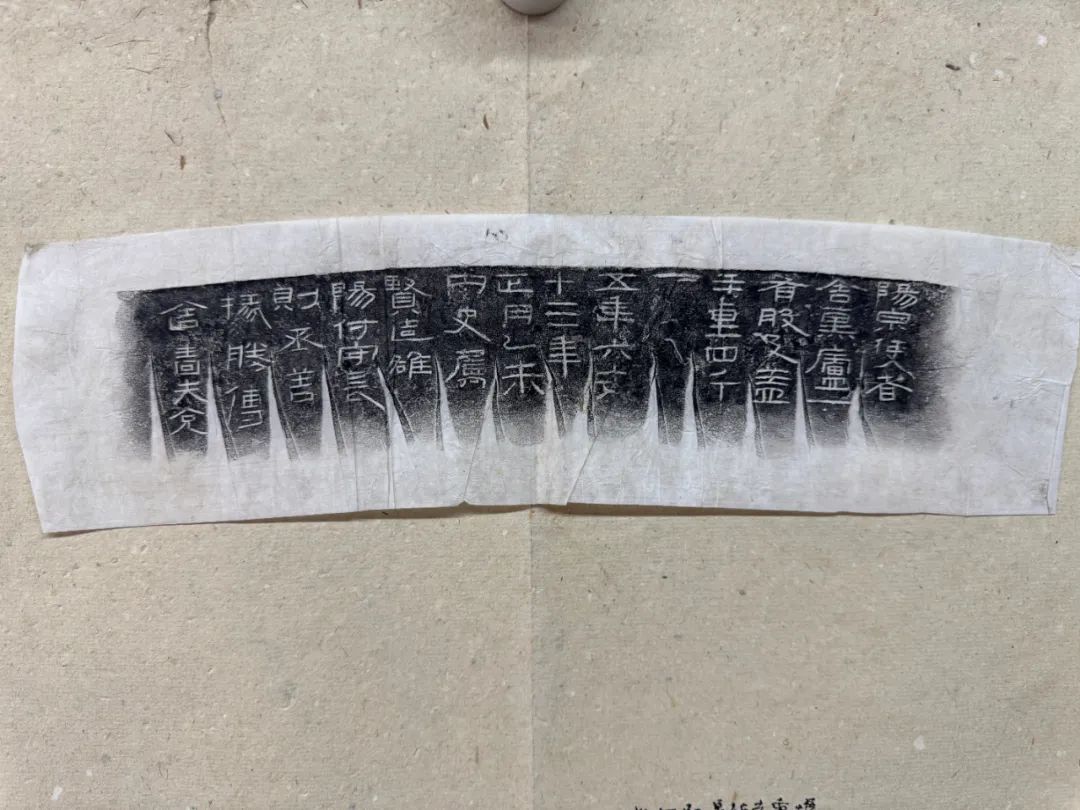 陽泉使者
舍熏盧一
有般及蓋
并重四斤
一
五年六安
十三年
正月乙未
内史屬
賢造雒
陽付守長
則丞善
掾勝傳
舍嗇夫兌